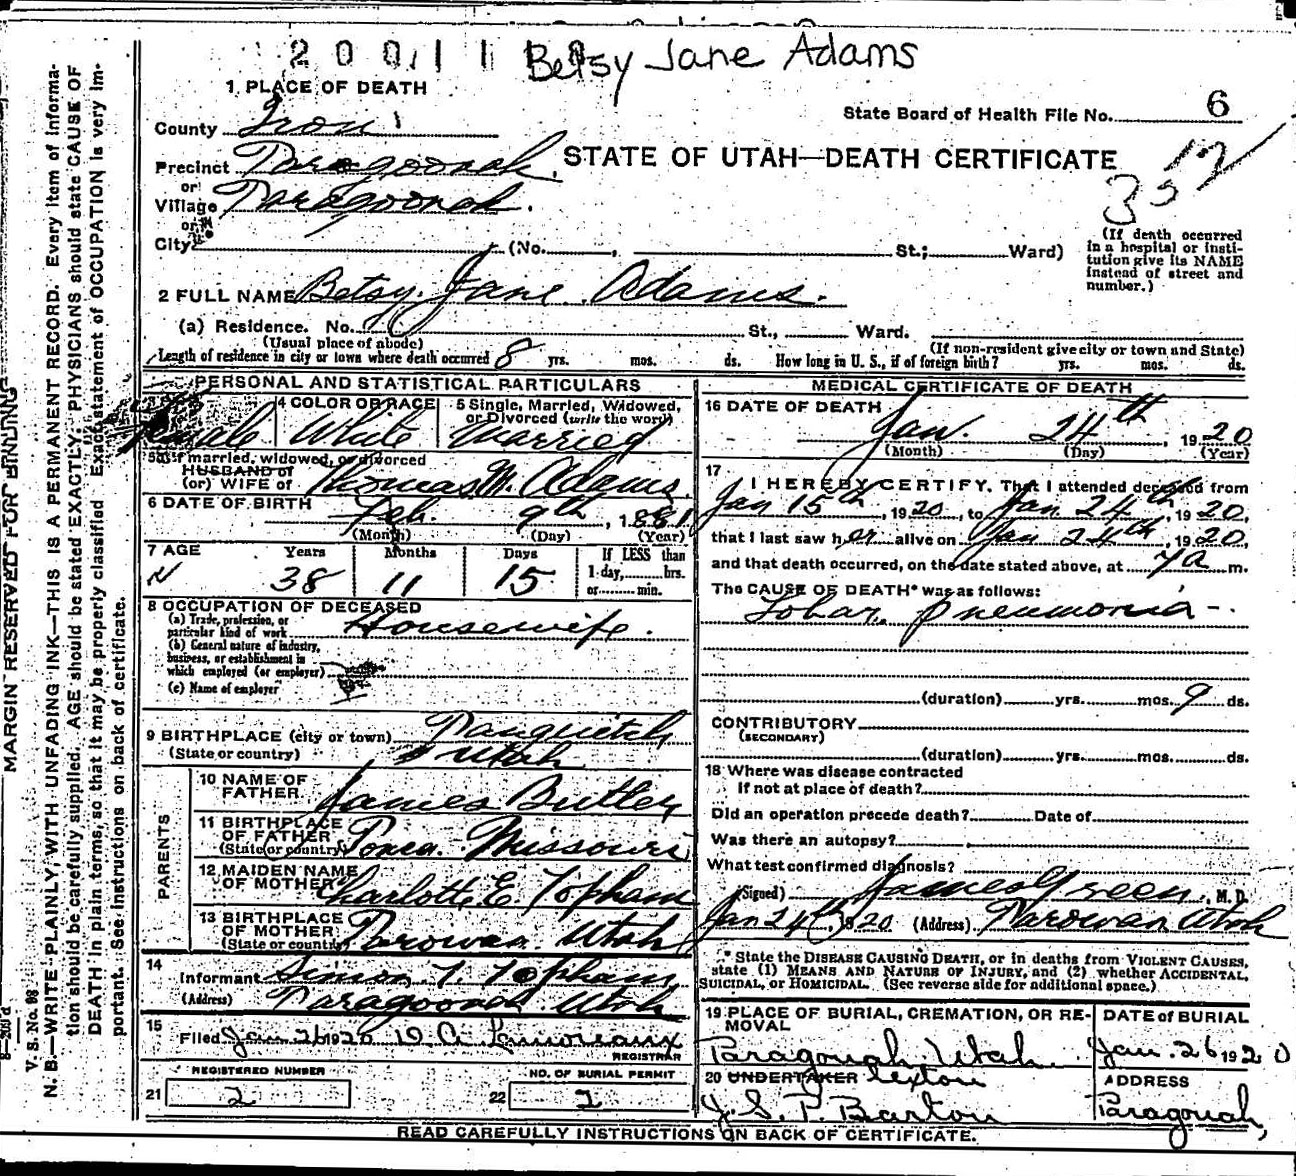 20011 Betsy Jane Adams
1 PLACE OF DEATH
State Board of Health File No. 6
County Iron
STATE OF UTAH—DEATH CERTIFICATE
352
Precinct Paragoonah.
or
Village Paragoonah.
or
City (No. , St.; Ward)
(If death occurred in a hospital or insti-
tution give its NAME
instead of street and
number.)
2 FULL NAME Betsy Jane Adams.
(a) Residence. No. St., Ward.
(Usual place of abode) (If non-resident give city or town and State)
Length of residence in city or town where death occurred 8 yrs. mos. ds. How long in U. S., if of foreign birth? yrs. mos. ds.
PERSONAL AND STATISTICAL PARTICULARS
4 COLOR OR RACE
5 Single, Married, Widowed,
or Divorced (write the word)
Female White Married
5a If married, widowed, or divorced
HUSBAND of
(or) WIFE of Thomas M. Adams
6 DATE OF BIRTH Feb. 9th, 1881
(Month) (Day) (Year)
7 AGE Years Months Days If LESS than
1 day, hrs.
or min.
38 11 15
8 OCCUPATION OF DECEASED
(a) Trade, profession, or
particular kind of work Housewife.
(b) General nature of industry,
business, or establishment in
which employed (or employer)
(c) Name of employer
9 BIRTHPLACE (city or town) Panguitch
(State or country) Utah
PARENTS
10 NAME OF
FATHER James Butler
11 BIRTHPLACE
OF FATHER
(State or country) Missouri
12 MAIDEN NAME
OF MOTHER Charlotte E. Topham
13 BIRTHPLACE
OF MOTHER
(State or country) Parowan. Utah
14
Informant Simon T. Topham
(Address) Paragoonah. Utah
15
Filed Jan 26 1920 D A Lamoreaux
REGISTRAR
REGISTERED NUMBER
21 2
NO. OF BURIAL PERMIT
22 2
MEDICAL CERTIFICATE OF DEATH
16 DATE OF DEATH
Jan. 24th, 1920
(Month) (Day) (Year)
17
I HEREBY CERTIFY, That I attended deceased from
Jan 15th, 1920, to Jan 24th, 1920,
that I last saw her alive on Jan 24th, 1920,
and that death occurred, on the date stated above, at 7 a m.
The CAUSE OF DEATH* was as follows:
Lobar pneumonia -.
(duration) yrs. mos. 9 ds.
CONTRIBUTORY
(SECONDARY)
(duration) yrs. mos. ds.
18 Where was disease contracted
If not at place of death?
Did an operation precede death? Date of
Was there an autopsy?
What test confirmed diagnosis?
(Signed) James Green, M. D.
Jan 24th, 1920 (Address) Parowan Utah
* State the DISEASE CAUSING DEATH, or in deaths from VIOLENT CAUSES,
state (1) MEANS AND NATURE OF INJURY, and (2) whether ACCIDENTAL,
SUICIDAL, or HOMICIDAL. (See reverse side for additional space.)
19 PLACE OF BURIAL, CREMATION, OR RE-
MOVAL
Paragonah, Utah.
DATE of BURIAL
Jan. 26 1920
20 UNDERTAKER Sexton
J. S. P. Barton
ADDRESS
Paragonah,
READ CAREFULLY INSTRUCTIONS ON BACK OF CERTIFICATE.
MARGIN RESERVED FOR BINDING
V. S. No. 98
N. B.—WRITE PLAINLY, WITH UNFADING INK—THIS IS A PERMANENT RECORD. Every item of informa-
tion should be carefully supplied. AGE should be stated EXACTLY. PHYSICIANS should state CAUSE OF
DEATH in plain terms, so that it may be properly classified. Exact statement of OCCUPATION is very im-
portant. See instructions on back of certificate.